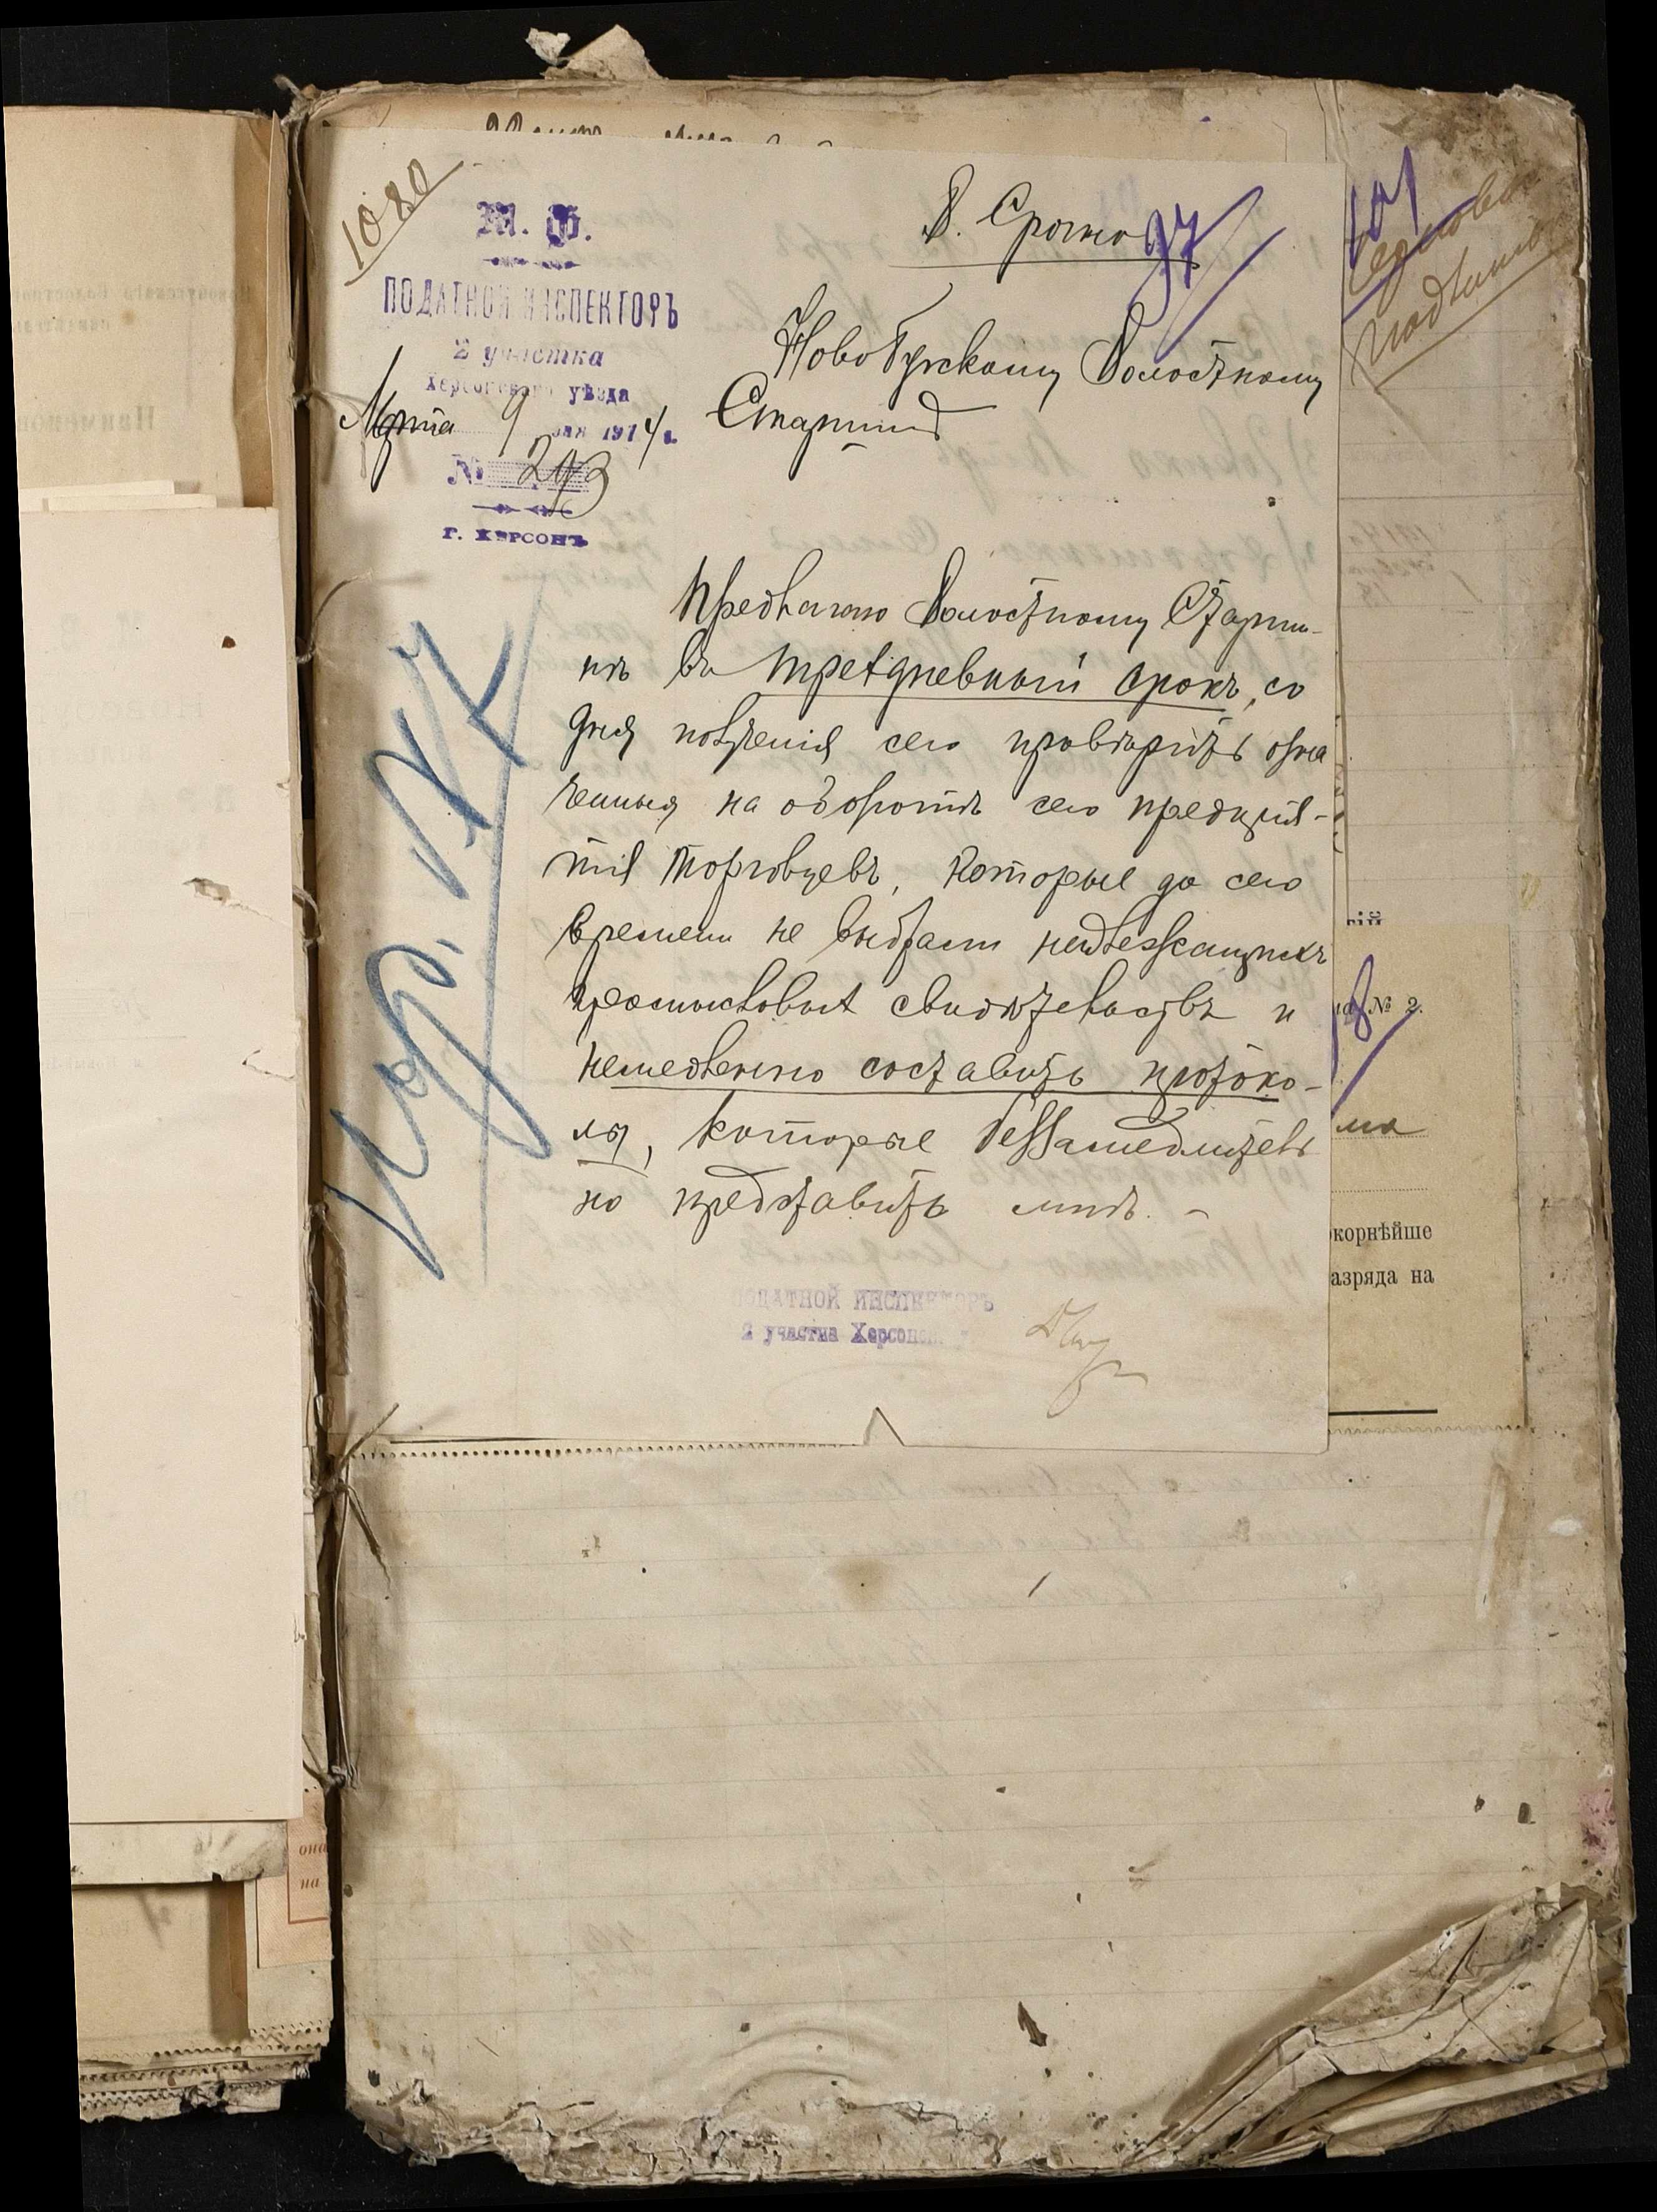 1080
М. Ф.
ПОДАТНОЙ ИНСПЕКТОРЪ
2 участка
Херсонскаго уѣзда
Марта 9 дня 1914 г.
№ 293
Г. ХЕРСОНЪ
В. Срочно
97
Новобугскому Волостному
Старшинѣ
Предлагаю Волостному Старши-
нѣ въ трехдневный срокъ, со
дня полученія сего провѣрить озна
ченныя на оборотѣ сего предпрія-
тія торговцевъ, которые до сего
времени не выбрали надлежащихъ
промысловыхъ свидѣтельствъ и
немедленно составить протоко-
лы, которые беззамедлитель
но представить мнѣ. -
ПОДАТНОЙ ИНСПЕКТОРЪ
2 участка Херсонск
101
18
№ 2.
ма
окорнѣйше
азряда на
она
на